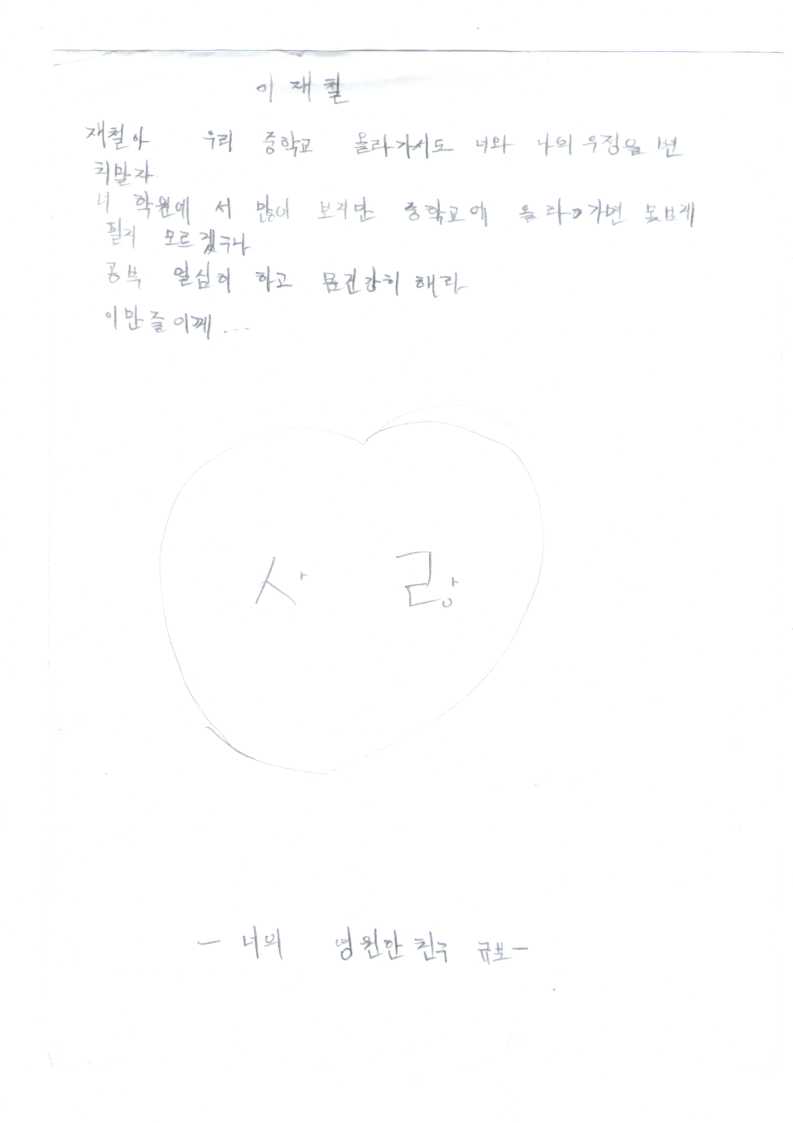 이재철
재철아 우리 중학교 올라가서도 너와 나의 우정을 변
치말자
너 학원에서 많이 보지만 중학교에 올라가면 못보게
될지 모르겠구나
공부 열심히 하고 몸건강히 해라
이만 줄이께...
사랑
- 너의 영원한 친구 규보 -